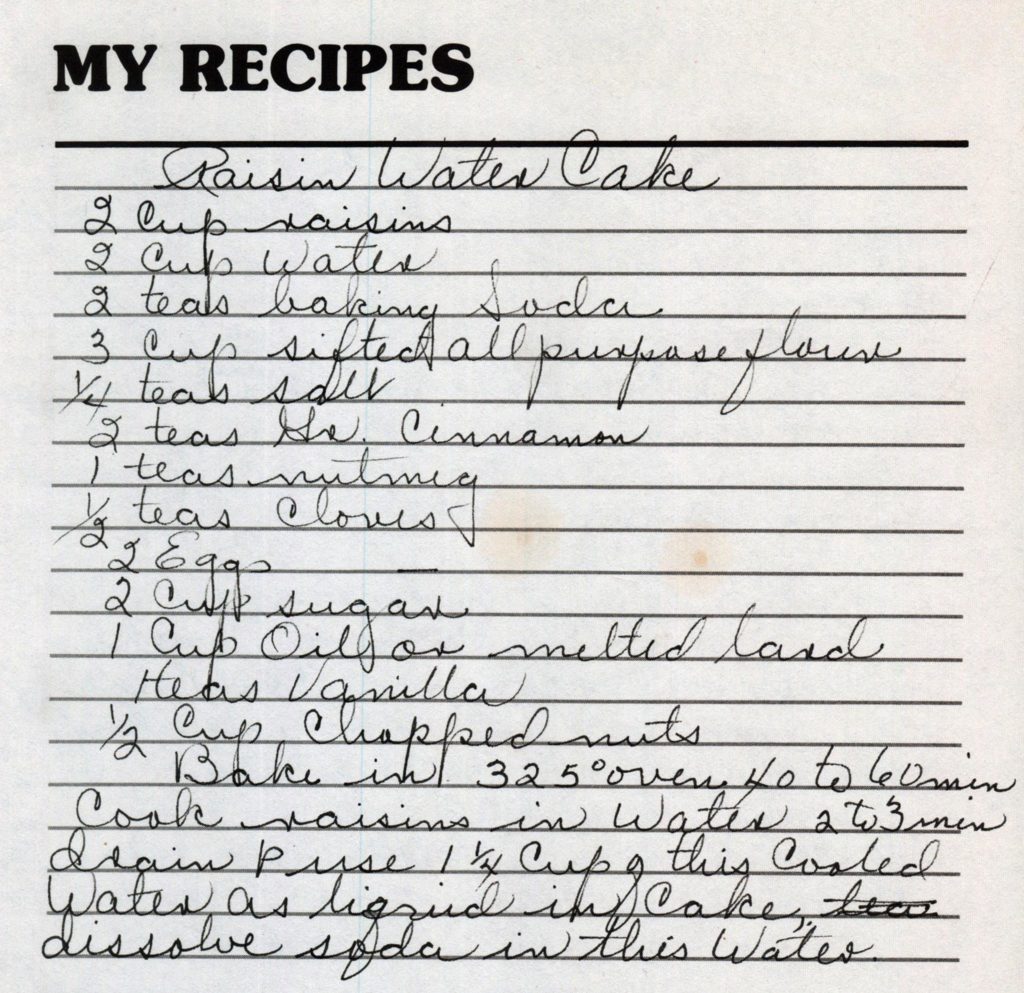 MY RECIPES
Raisin Water Cake
2 Cup raisins
2 Cup Water
2 teas baking Soda
3 Cup sifted all purpose flour
1/4 teas salt
2 teas Gr. Cinnamon
1 teas nutmeg
1/2 teas Cloves
2 Eggs
2 Cup sugar
1 Cup Oil or melted lard
1 teas Vanilla
1/2 Cup Chopped nuts
Bake in 325° oven 40 to 60 min
Cook raisins in Water 2 to 3 min
drain & use 1 1/4 Cup of this Cooled
Water as liquid in Cake,
dissolve soda in this Water.